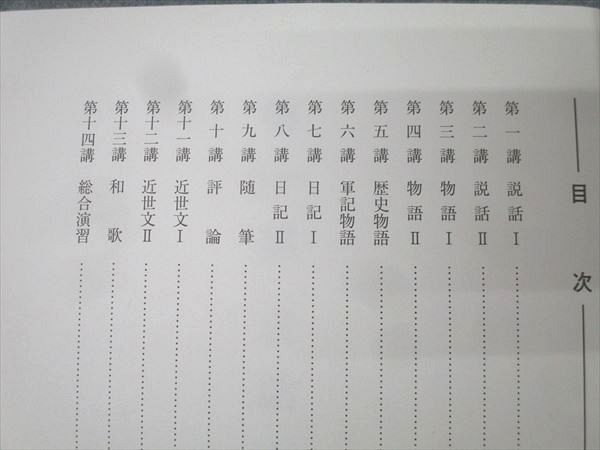 目次
第一講 説話Ⅰ
第二講 説話Ⅱ
第三講 物語Ⅰ
第四講 物語Ⅱ
第五講 歴史物語
第六講 軍記物語
第七講 日記Ⅰ
第八講 日記Ⅱ
第九講 随筆
第十講 評論
第十一講 近世文Ⅰ
第十二講 近世文Ⅱ
第十三講 和歌
第十四講 総合演習